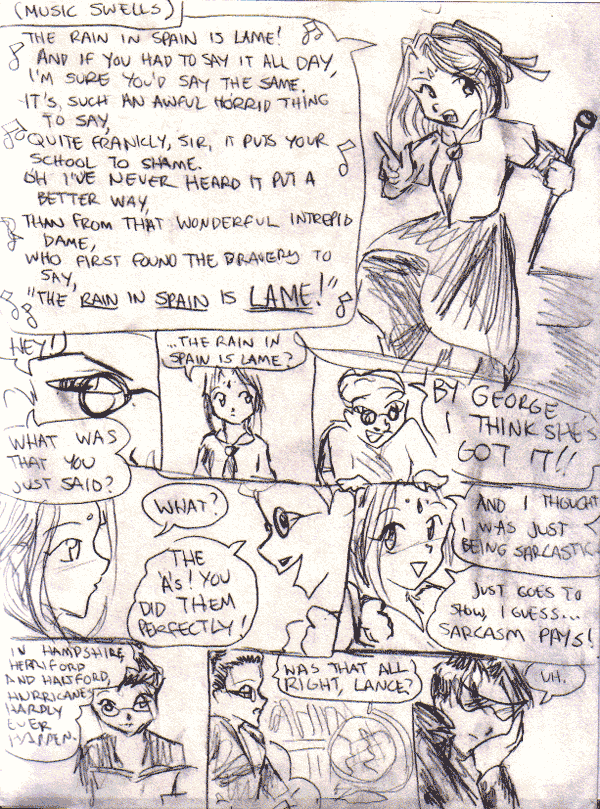 (MUSIC SWELLS)
THE RAIN IN SPAIN IS LAME!
AND IF YOU HAD TO SAY IT ALL DAY,
I'M SURE YOU'D SAY THE SAME.
IT'S SUCH AN AWFUL HORRID THING
TO SAY,
QUITE FRANKLY, SIR, IT PUTS YOUR
SCHOOL TO SHAME.
OH I'VE NEVER HEARD IT PUT A
BETTER WAY,
THAN FROM THAT WONDERFUL INTREPID
DAME,
WHO FIRST FOUND THE BRAVERY TO
SAY,
"THE RAIN IN SPAIN IS LAME!"
HEY!
WHAT WAS
THAT YOU
JUST SAID?
...THE RAIN IN
SPAIN IS LAME?
BY GEORGE
I THINK SHE'S
GOT IT!!
WHAT?
THE
'A's! YOU
DID THEM
PERFECTLY!
AND I THOUGHT
I WAS JUST
BEING SARCASTIC.
JUST GOES TO
SHOW, I GUESS...
SARCASM PAYS!
IN HAMPSHIRE,
HERIFORD
AND HARTFORD,
HURRICANES
HARDLY
EVER
HAPPEN.
WAS THAT ALL
RIGHT, LANCE?
UH.